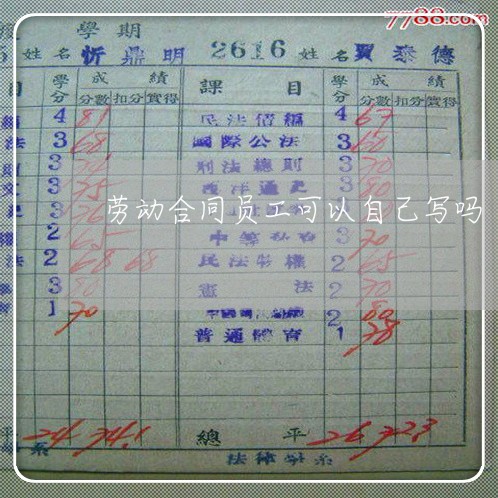 7788.com
學期
5 姓名 忻鼎明 2616 姓名 賈泰德
目 學分 成績 課目 學分 成績
分數 扣分 實得 分數 扣分 實得
4 81 民法債編 4 67
法 3 68 國際公法 3 60
3 刑法總則 3 70
3 75 西洋通史 3 80
劳动合同员工可以自己写吗
2 65 中等 3 70
法 2 68 68 民法物權 2 65
3 80 憲法 2 70
1 70 2 80
普通體育 1 78
平 24 74.1 總平 26 72.3
系 法律學系